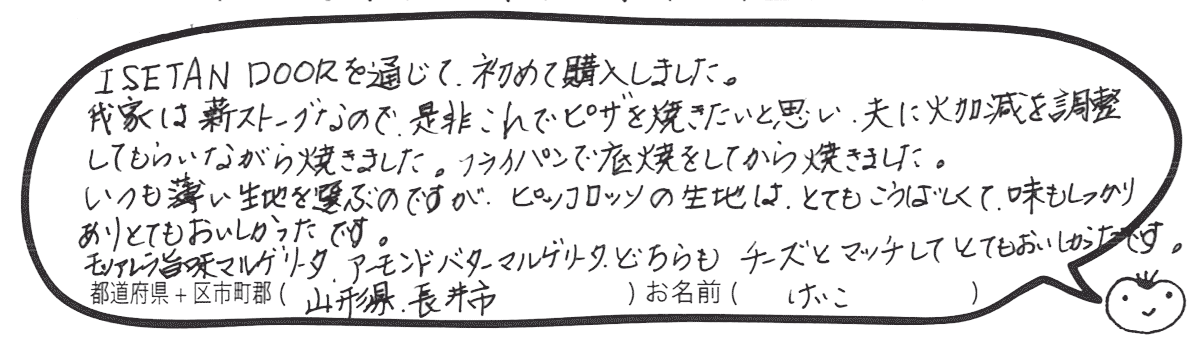 ISETAN DOORを通じて、初めて購入しました。
我家は薪ストーブなので、是非これでピザを焼きたいと思い、夫に火加減を調整
してもらいながら焼きました。フライパンで底焼をしてから焼きました。
いつも薄い生地を選ぶのですが、ピッコロッソの生地は、とてもこうばしくて、味もしっかり
ありとてもおいしかったです。
モッツァレラ旨味マルゲリータ、アーモンドバターマルゲリータ、どちらも チーズとマッチしてとてもおいしかったです。
都道府県+区市町郡( 山形県、長井市 )お名前( けいこ )